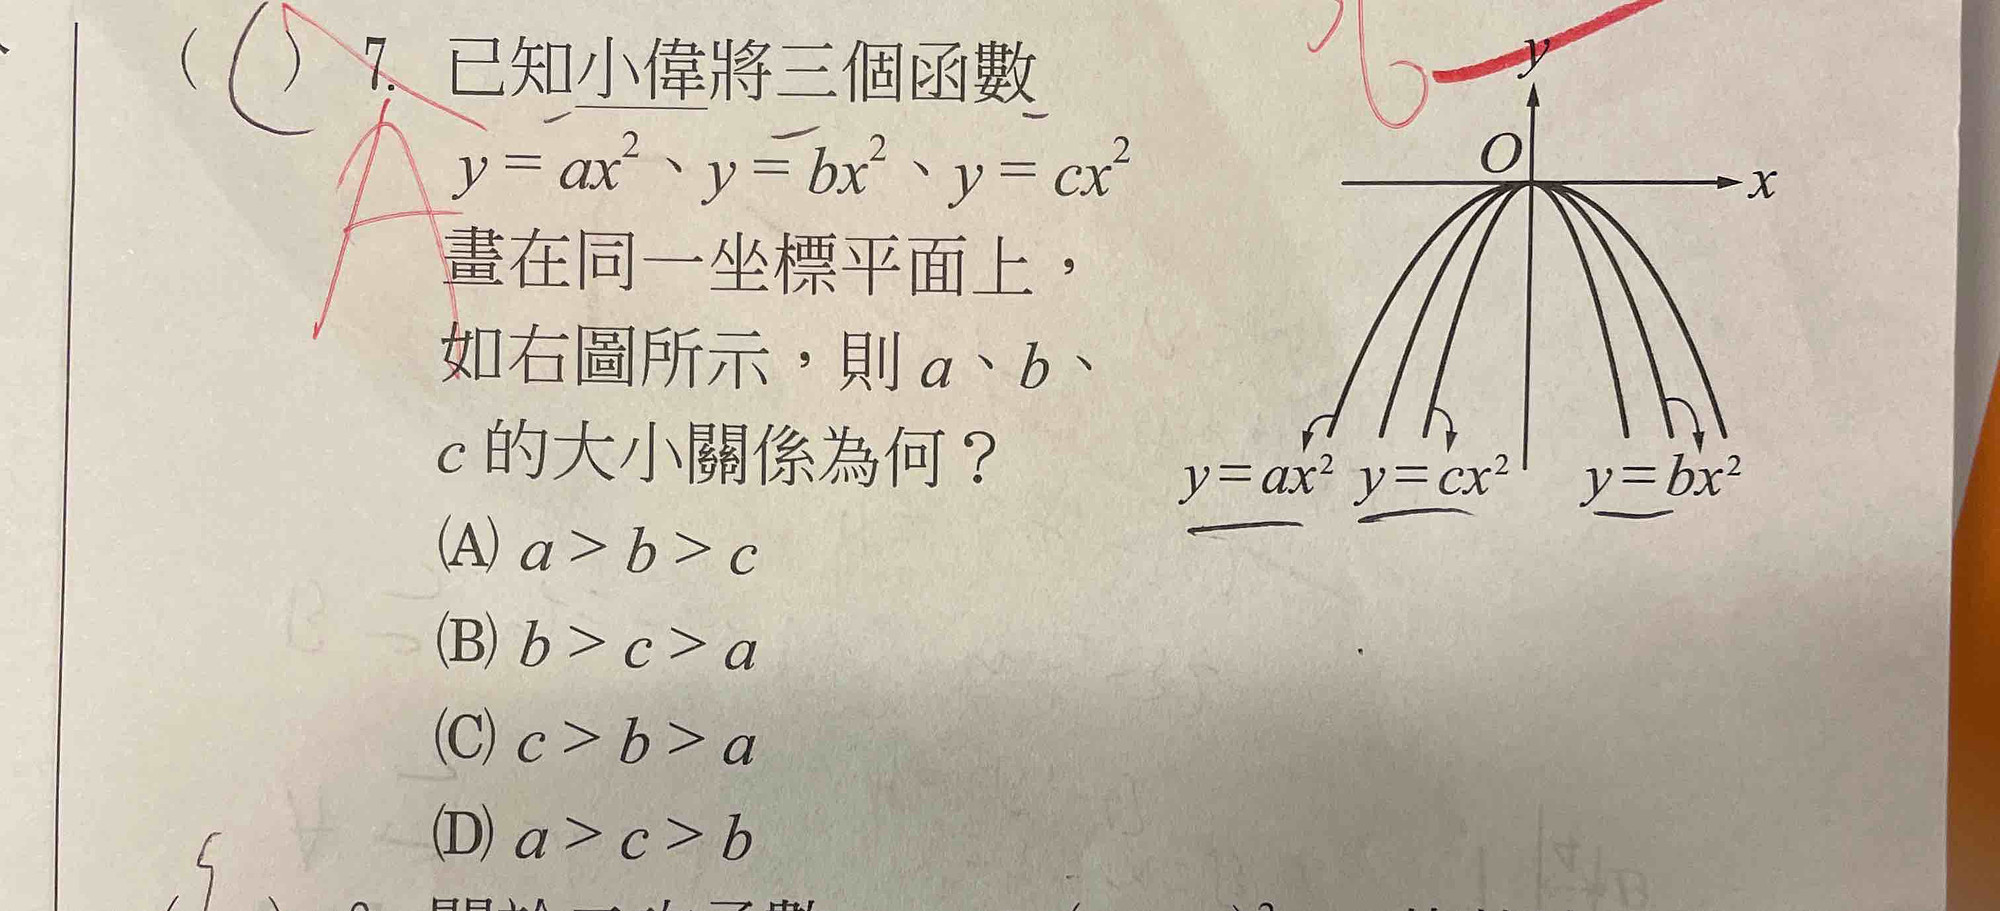 ( C ) 7. 已知小偉將三個函數
y=ax²、y=bx²、y=cx²
畫在同一坐標平面上，
如右圖所示，則 a、b、
c 的大小關係為何？
(A) a > b > c
(B) b > c > a
(C) c > b > a
(D) a > c > b
A
y
O
x
y=ax² y=cx² y=bx²